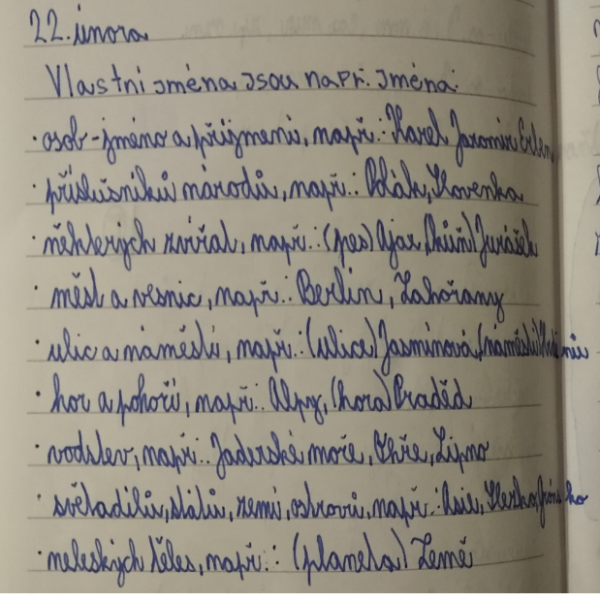 22. února
Vlastní jména jsou např. jména:
· osob - jméno a příjmení, např.: Karel Jaromír Erben
· příslušníků národů, např.: Polák, Slovenka
· některých zvířat, např.: (pes) Ajax, (kůň) Jurášek
· měst a vesnic, např.: Berlín, Zahořany
· ulic a náměstí, např.: (ulice) Jasmínová, (náměstí)
· hor a pohoří, např.: Alpy, (hora) Praděd
· vodstev, např.: Jaderské moře, Ohře, Lipno
· světadílů, států, zemí, ostrovů, např.: Asie,
· neleských těles, např.: (planeta) Země